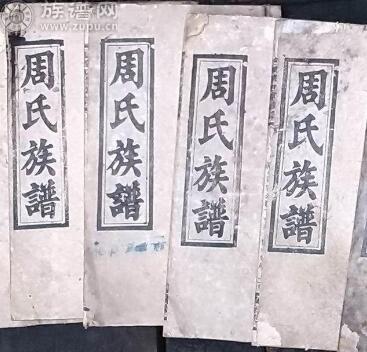 族谱网
www.zupu.cn
周氏族譜
周氏族譜
周氏族譜
周氏族譜